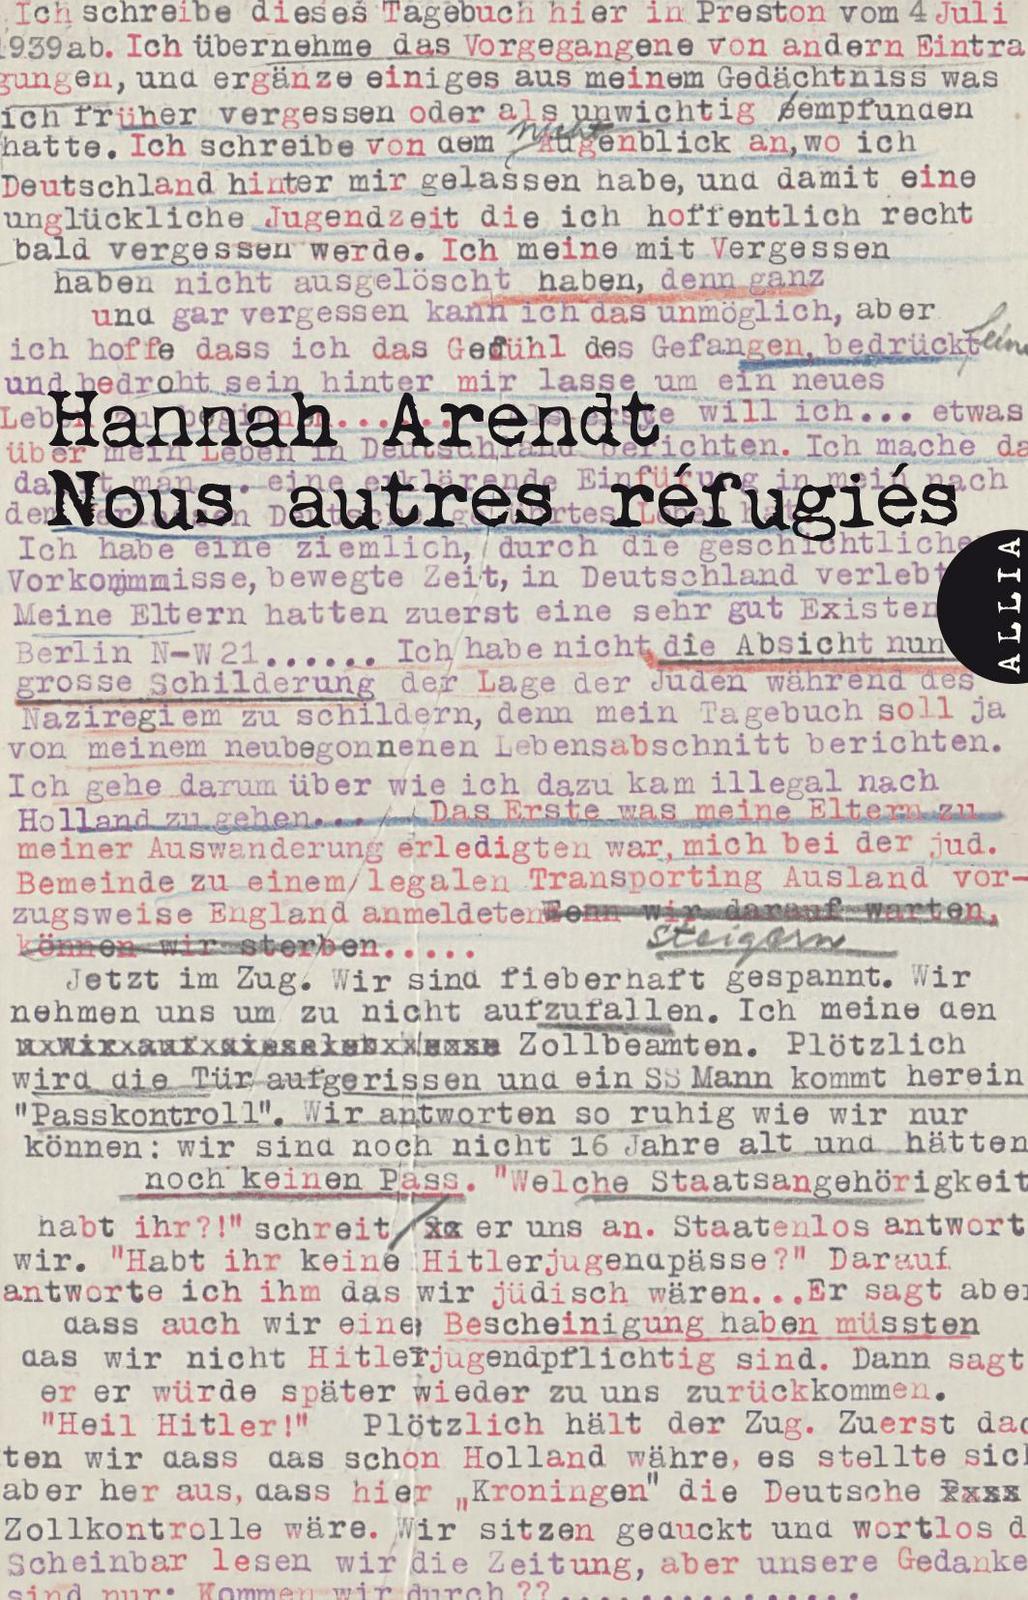 Ich schreibe dieses Tagebuch hier in Preston vom 4 Juli
1939 ab. Ich übernehme das Vorgegangene von andern Eintra
gungen, und ergänze einiges aus meinem Gedächtniss was
ich früher vergessen oder als unwichtig empfunden
nicht
hatte. Ich schreibe von dem Augenblick an, wo ich
Deutschland hinter mir gelassen habe, und damit eine
unglückliche Jugendzeit die ich hoffentlich recht
bald vergessen werde. Ich meine mit Vergessen
haben nicht ausgelöscht haben, denn ganz
und gar vergessen kann ich das unmöglich, aber
ich hoffe dass ich das Gefühl des Gefangen, bedrückt
und bedroht sein hinter mir lasse um ein neues
will ich... etwas
Hannah Arendt
über mein Leben in Deutschland berichten. Ich mache da
man... eine erklärende Einfürung in mein nach
Nous autres réfugiés
Ich habe eine ziemlich, durch die geschichtliche
Vorkommmisse, bewegte Zeit, in Deutschland verlebt
ALLIA
Meine Eltern hatten zuerst eine sehr gut Existen
Berlin N-W21...... Ich habe nicht die Absicht nun
grosse Schilderung der Lage der Juden während des
Naziregiem zu schildern, denn mein Tagebuch soll ja
von meinem neubegonnenen Lebensabschnitt berichten.
Ich gehe darum über wie ich dazu kam illegal nach
Holland zu gehen... Das Erste was meine Eltern zu
meiner Auswanderung erledigten war, mich bei der jud.
Bemeinde zu einem/legalen Transporting Ausland vor-
zugsweise England anmeldeten Wenn wir darauf warten,
können wir sterben..... steigern
Jetzt im Zug. Wir sind fieberhaft gespannt. Wir
nehmen uns um zu nicht aufzufallen. Ich meine den
Zollbeamten. Plötzlich
wird die Tür aufgerissen und ein SS Mann kommt herein
"Passkontroll". Wir antworten so ruhig wie wir nur
können: wir sind noch nicht 16 Jahre alt und hätten
noch keinen Pass. "Welche Staatsangehörigkeit
habt ihr?!" schreit/xx er uns an. Staatenlos antwort
wir. "Habt ihr keine Hitlerjugendpässe?" Darauf
antworte ich ihm das wir jüdisch wären...Er sagt aber
dass auch wir eine Bescheinigung haben müssten
das wir nicht Hitlerjugendpflichtig sind. Dann sagt
er er würde später wieder zu uns zurückkommen.
"Heil Hitler!" Plötzlich hält der Zug. Zuerst dac
ten wir dass das schon Holland währe, es stellte sich
aber her aus, dass hier „Kroningen" die Deutsche
Zollkontrolle wäre. Wir sitzen geduckt und wortlos d
Scheinbar lesen wir die Zeitung, aber unsere Gedanke
sind nur: Kommen wir durch ??..............